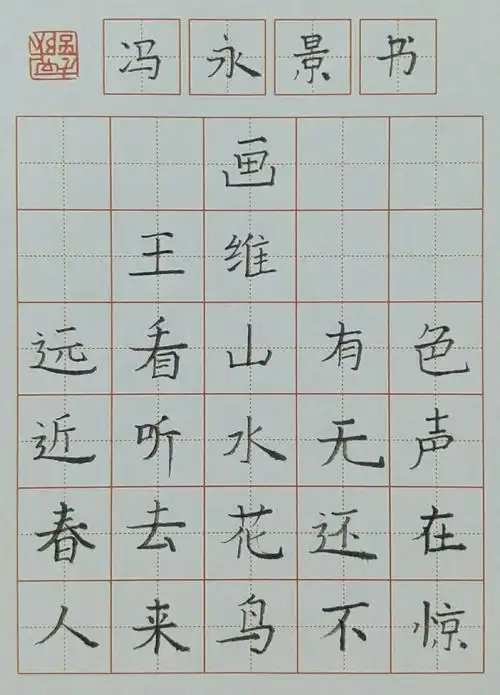 冯永景书
画
王维
远看山有色
近听水无声
春去花还在
人来鸟不惊